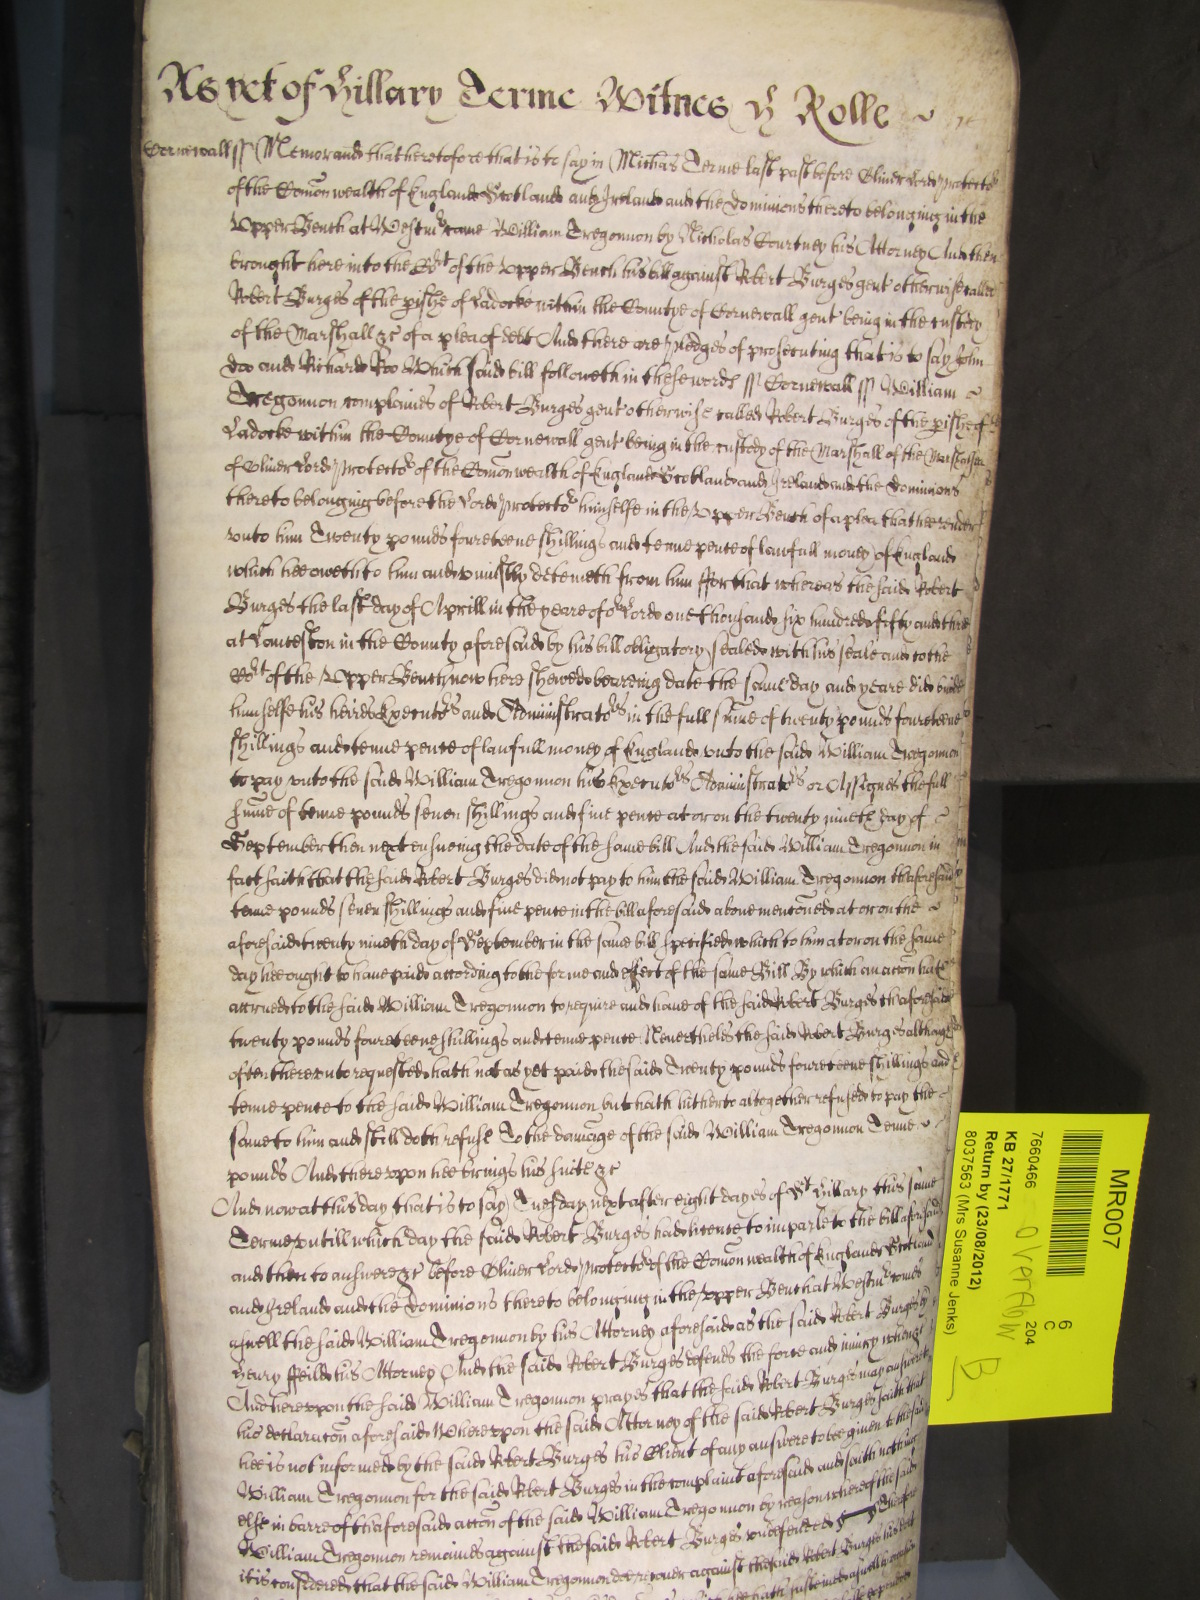 As yet of Hillary Terme Witnes H Rolle
Cornewall ss Memorand that heretofore that is to say in Michas Terme last past before Oliver Lord Protector
of the Comon wealth of England Scotland and Ireland and the dominions thereto belonging in the
Upper Bench at Westmr came William Tregonnon by Nicholas Courtney his Attorney And then
brought here into the Cort of the Upper Bench his bill against Robert Burges gent otherwise called
Robert Burges of the pishe of Ladocke within the Countye of Cornewall gent being in the custody
of the Marshall &c of a plea of debt And there are pledges of prosecuting that is to say John
Doo and Richard Roo Which said bill followeth in these words ss Cornewall ss William
Tregonnon complaines of Robert Burges gent otherwise called Robert Burges of the pishe of
Ladocke within the Countye of Cornewall gent being in the custody of the Marshall of the Marshalsea
of Oliver Lord Protector of the Comon wealth of England Scotland and Ireland and the Dominions
thereto belonging before the Lord Protector himselfe in the Upper Bench of a plea that hee render
unto him Twenty pounds foureteene shillings and tenne pence of lawfull money of England
which hee oweth to him and uniustly deteineth from him ffor that whereas the said Robert
Burges the last day of Aprill in the yeare of or Lord one thousand six hundred fifty and three
at Lanceston in the County aforesaid by his bill obligatory sealed with his seale and to the
Cort of the Upper Bench now here shewed beareing date the same day and yeare did binde
himselfe his heires Executors and Administrators in the full sume of twenty pounds foureteene
shillings and tenne pence of lawfull money of England unto the said William Tregonnon
to pay unto the said William Tregonnon his Executors Administrators or Assignes the full
sume of tenne pounds seven shillings and five pence at or on the twenty nineth day of
September then next ensueing the date of the same bill And the said William Tregonnon in
fact saith that the said Robert Burges did not pay to him the said William Tregonnon thaforesaid
tenne pounds seven shillings and five pence in the bill aforesaid above menconed at or on the
aforesaid twenty nineth day of September in the same bill specified which to him at or on the same
day hee ought to have paid according to the forme and effect of the same Bill By which an accon hath
accrued to the said William Tregonnon to require and have of the said Robert Burges thaforesaid
twenty pounds foureteene shillings and tenne pence Neverthelesse the said Robert Burges although
often thereunto requested hath not as yet paid the said Twenty pounds foureteene shillings and
tenne pence to the said William Tregonnon but hath hitherto altogether refused to pay the
same to him and still doth refuse To the damage of the said William Tregonnon Tenne
pounds And thereuppon hee brings his suite &c
And now at this day that is to say Tuesday next after eight dayes of St Hillary this same
Terme untill which day the said Robert Burges had licence to imparle to the bill aforesaid
and then to answere &c before Oliver Lord Protector of the Comon wealth of England Scotland
and Ireland and the Dominions thereto belonging in the Upper Bench at Westmr comes
aswell the said William Tregonnon by his Attorney aforesaid as the said Robert Burges by
Henry ffeild his Attorney And the said Robert Burges defends the force and iniury when &c
And hereuppon the said William Tregonnon prayes that the said Robert Burges may answere
his declaracon aforesaid Whereuppon the said Attorney of the said Robert Burges saith that
hee is not informed by the said Robert Burges his Client of any answere to bee given to the said
William Tregonnon for the said Robert Burges in the complaint aforesaid and saith nothing
else in barre of thaforesaid accon of the said William Tregonnon by reason whereof the said
William Tregonnon remaines against the said Robert Burges undefended Therefore
it is considered that the said William Tregonnon doe recover against the said Robert Burges his debt
MR007
6
C
7660466
204
KB 27/1771
Return by (23/08/2012)
8037563 (Mrs Susanne Jenks)